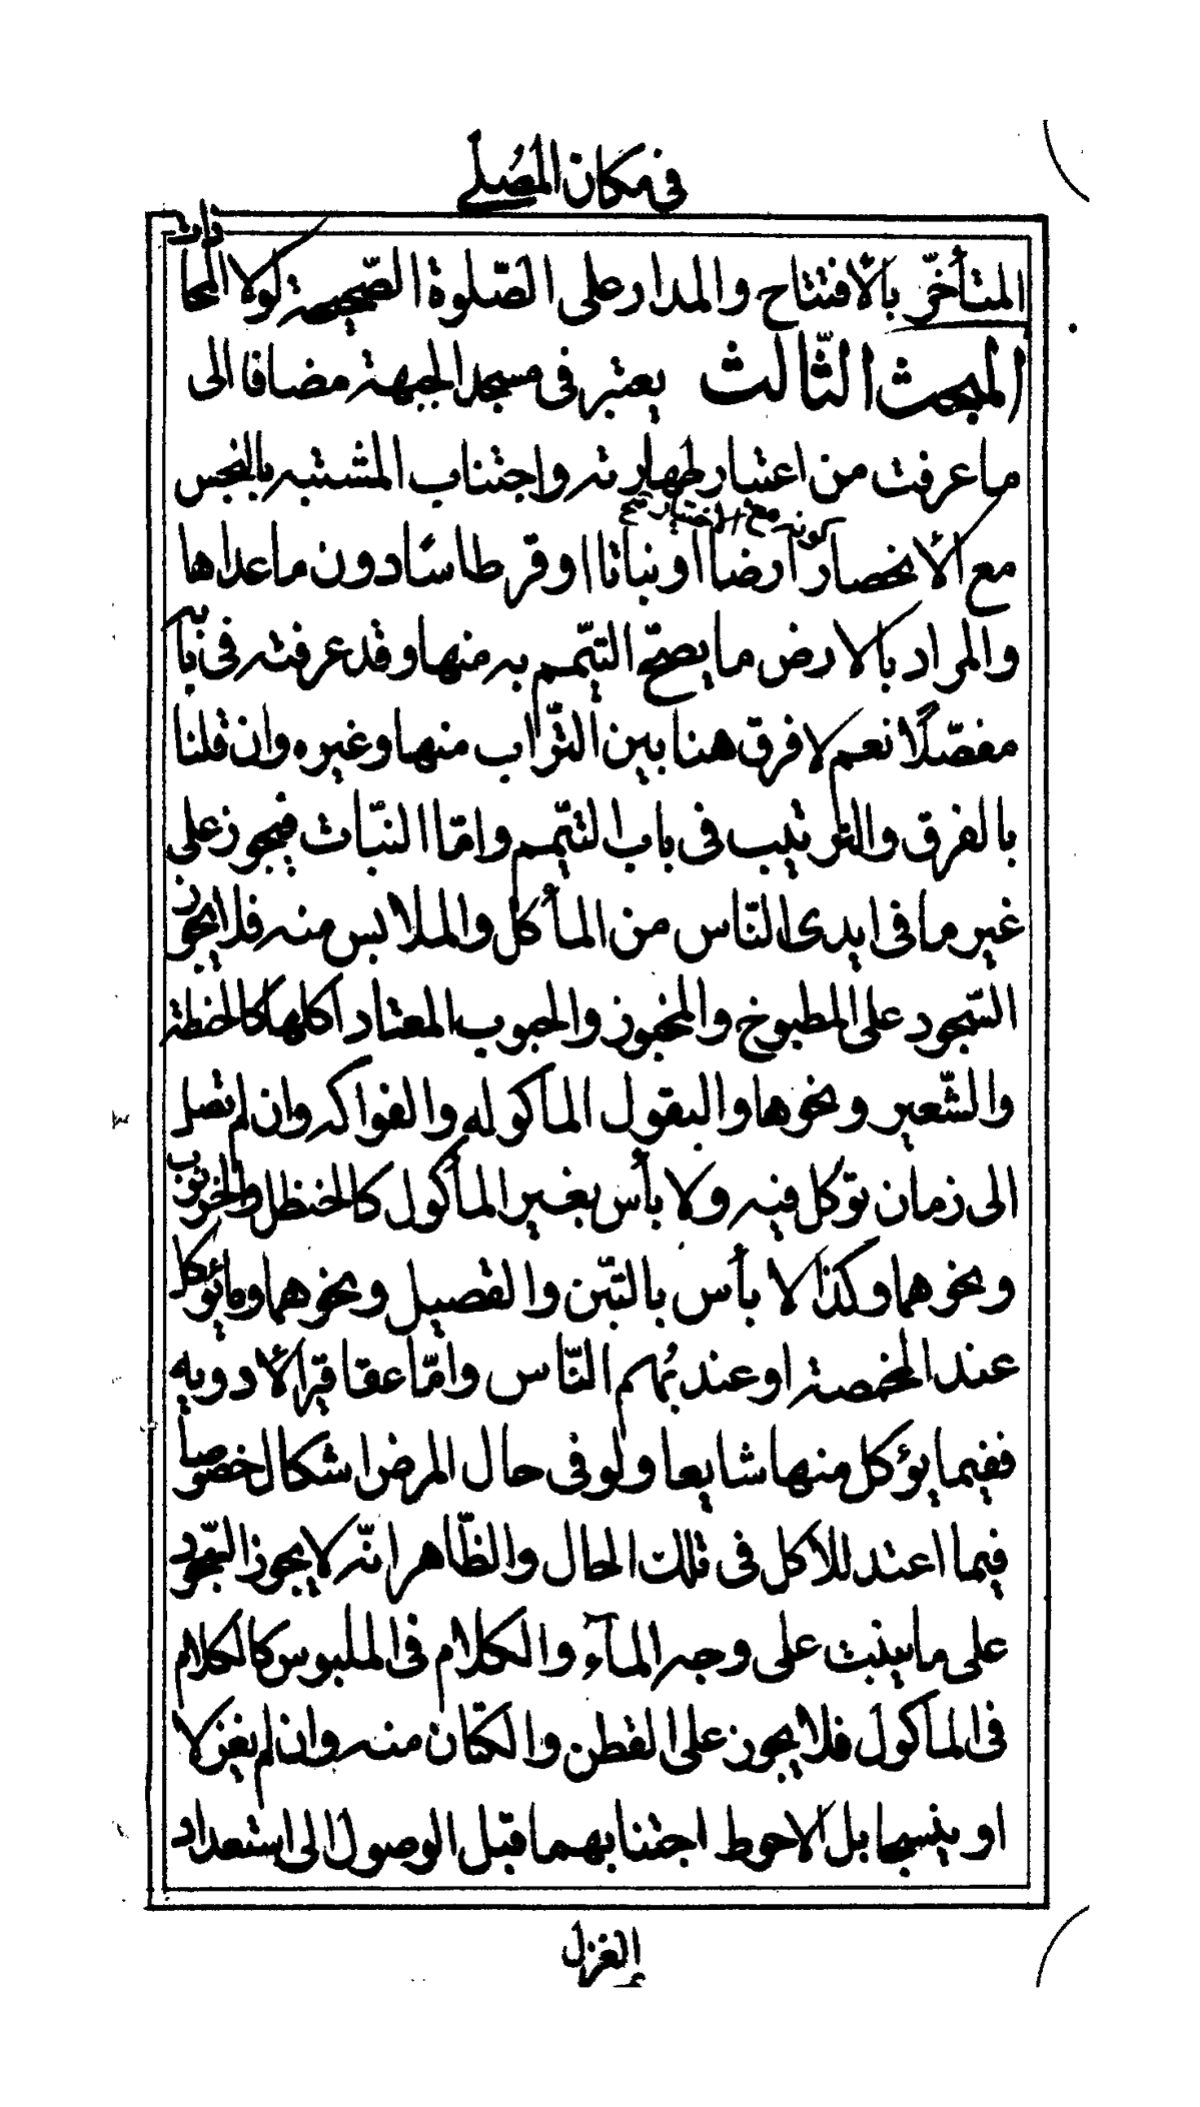 في مكان المصلى
المتأخّر بالأفتتاح والمدار على الصّلوة الصّحيحة لولا المحاذات
المبحث الثّالث يعتبر في مسجد الجبهة مضافا الى
ما عرفت من اعتبار طهارته واجتناب المشتبه بالنجس
مع الأنحصار كونه مع الاختيار صح ارضا او نباتا او قرطاسًا دون ما عداها
والمراد بالارض ما يصحّ التيّمم به منها وقد عرفته في بابه
مفصّلًا نعم لا فرق هنا بين التّراب منها وغيره وان قلنا
بالفرق والترتيب في باب التيّمم وامّا النبّات فيجوز على
غير ما في ايدى النّاس من المأكل والملابس منه فلا يجوز
السّجود على المطبوخ والمخبوز والحبوب المعتاد اكلها كالحنطة
والشّعير ونحوها والبقول المأكوله والفواكه وان لم تصل
الى زمان تؤكل فيه ولا بأس بغير المأكول كالحنظل والخرنوب
ونحوهما وكذا لا بأس بالتبّن والقصيل ونحوهما وما يؤكل
عند المخمصة او عند بُهم النّاس وامّا عقاقير الأدويه
ففيما يؤكل منها شايعا ولو في حال المرض اشكال خصوصا
فيما اعتد للأكل في تلك الحال والظّاهر انّه لا يجوز السّجود
على ما ينبت على وجه المآء والكلام في الملبوس كالكلام
في المأكول فلا يجوز على القطن والكتان منه وان لم يغزلا
او ينسجا بل الاحوط اجتنابهما قبل الوصول الى استعداد
الغزل